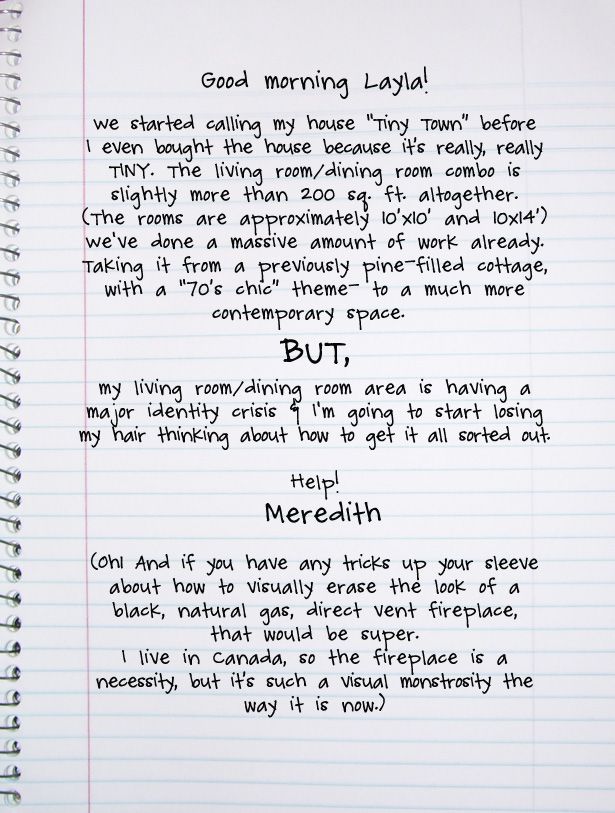 Good morning Layla!
We started calling my house "Tiny Town" before
I even bought the house because it's really, really
TINY. The living room/dining room combo is
slightly more than 200 sq. ft. altogether.
(The rooms are approximately 10'x10' and 10x14')
We've done a massive amount of work already.
Taking it from a previously pine-filled cottage,
with a "70's chic" theme- to a much more
contemporary space.
BUT,
my living room/dining room area is having a
major identity crisis & I'm going to start losing
my hair thinking about how to get it all sorted out.
Help!
Meredith
(Oh! And if you have any tricks up your sleeve
about how to visually erase the look of a
black, natural gas, direct vent fireplace,
that would be super.
I live in Canada, so the fireplace is a
necessity, but it's such a visual monstrosity the
way it is now.)